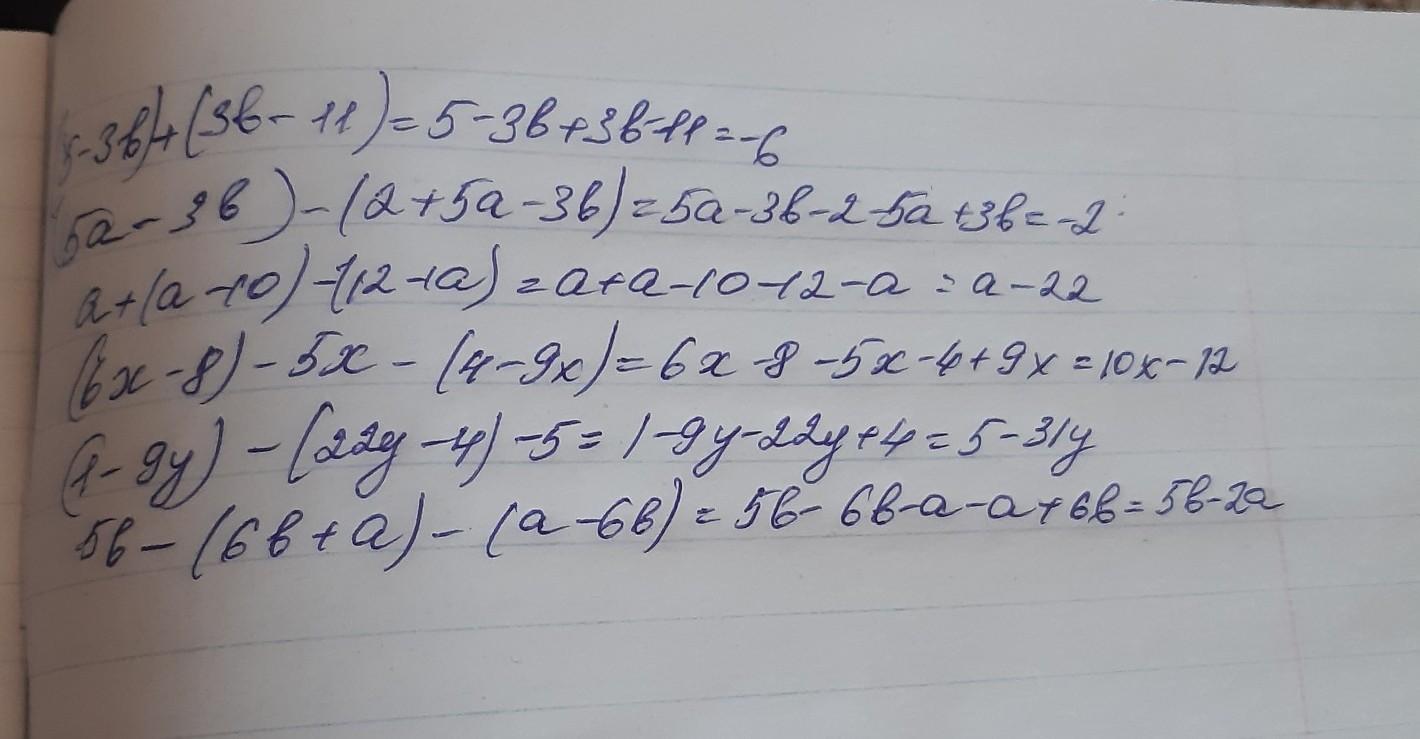 5-3b)+(3b-11)=5-3b+3b-11=-6
(5a-3b)-(2+5a-3b)=5a-3b-2-5a+3b=-2
a+(a-10)-(12+a)=a+a-10-12-a=a-22
(6x-8)-5x-(4-9x)=6x-8-5x-4+9x=10x-12
(1-9y)-(22y-4)-5=1-9y-22y+4=5-31y
5b-(6b+a)-(a-6b)=5b-6b-a-a+6b=5b-2a